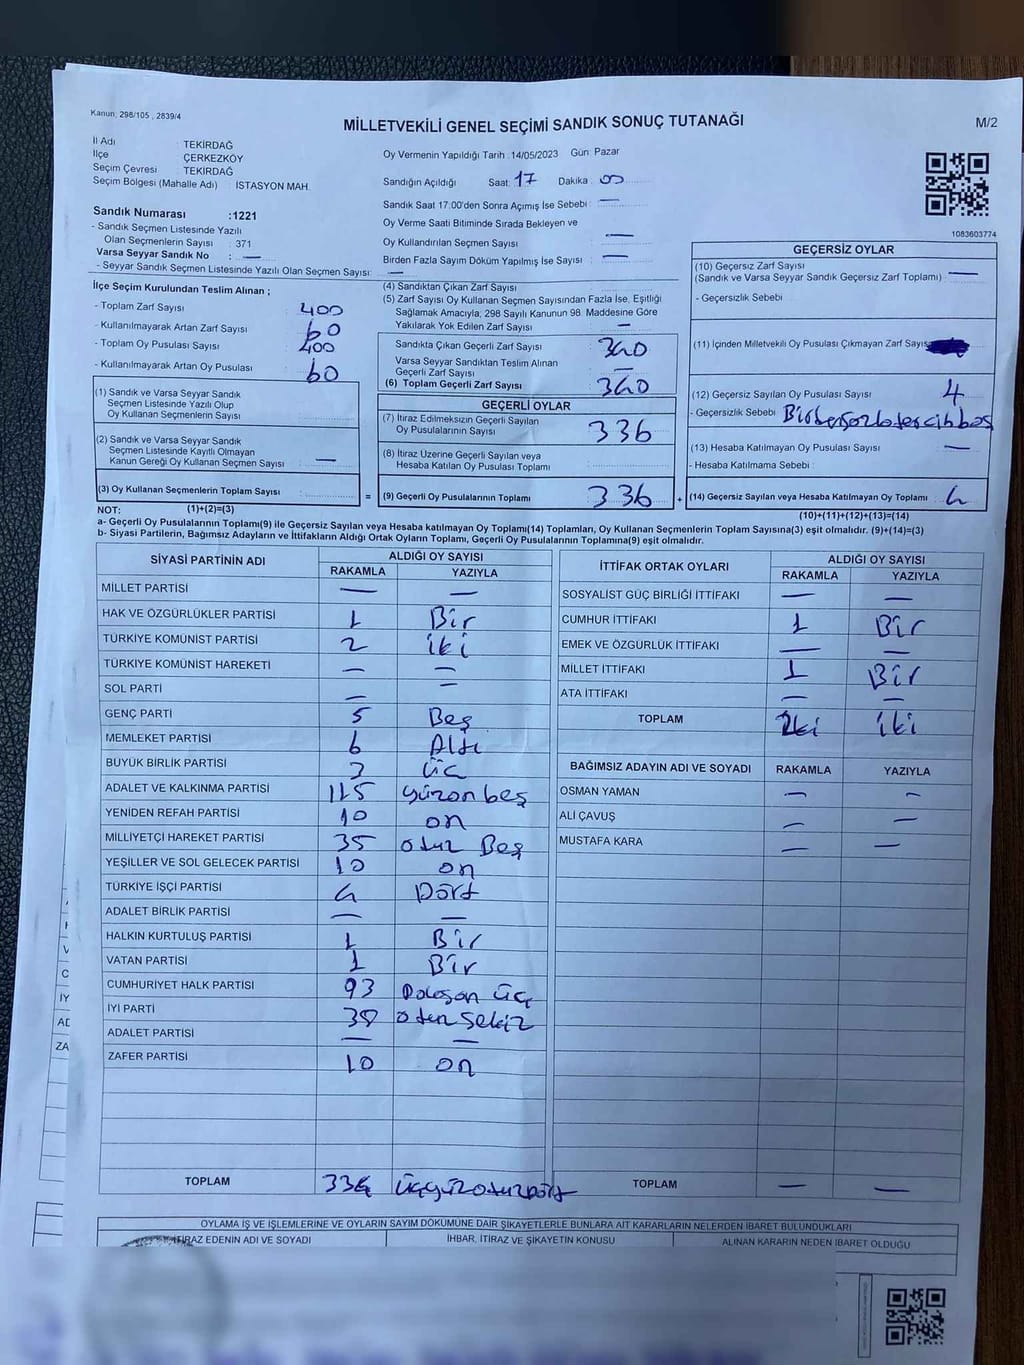 Kanun: 298/105 , 2839/4
MİLLETVEKİLİ GENEL SEÇİMİ SANDIK SONUÇ TUTANAĞI
M/2
İl Adı : TEKİRDAĞ
İlçe : ÇERKEZKÖY
Seçim Çevresi : TEKİRDAĞ
Seçim Bölgesi (Mahalle Adı) : İSTASYON MAH.
Oy Vermenin Yapıldığı Tarih :14/05/2023 Gün: Pazar
Sandığın Açıldığı Saat: 17 Dakika: 00
Sandık Saat 17:00'den Sonra Açımış İse Sebebi : —
Oy Verme Saati Bitiminde Sırada Bekleyen ve
Oy Kullandırılan Seçmen Sayısı : —
Birden Fazla Sayım Döküm Yapılmış İse Sayısı : —
Sandık Numarası :1221
- Sandık Seçmen Listesinde Yazılı
Olan Seçmenlerin Sayısı : 371
Varsa Seyyar Sandık No : —
- Seyyar Sandık Seçmen Listesinde Yazılı Olan Seçmen Sayısı: —
1083603774
İlçe Seçim Kurulundan Teslim Alınan ;
- Toplam Zarf Sayısı : 400
- Kullanılmayarak Artan Zarf Sayısı : 60
- Toplam Oy Pusulası Sayısı : 400
- Kullanılmayarak Artan Oy Pusulası : 60
(1) Sandık ve Varsa Seyyar Sandık
Seçmen Listesinde Yazılı Olup
Oy Kullanan Seçmenlerin Sayısı :
(2) Sandık ve Varsa Seyyar Sandık
Seçmen Listesinde Kayıtlı Olmayan
Kanun Gereği Oy Kullanan Seçmen Sayısı : —
(3) Oy Kullanan Seçmenlerin Toplam Sayısı :
(1)+(2)=(3)
(4) Sandıktan Çıkan Zarf Sayısı :
(5) Zarf Sayısı Oy Kullanan Seçmen Sayısından Fazla İse, Eşitliği
Sağlamak Amacıyla; 298 Sayılı Kanunun 98. Maddesine Göre
Yakılarak Yok Edilen Zarf Sayısı : —
Sandıkta Çıkan Geçerli Zarf Sayısı : 340
Varsa Seyyar Sandıktan Teslim Alınan
Geçerli Zarf Sayısı : —
(6) Toplam Geçerli Zarf Sayısı : 340
GEÇERLİ OYLAR
(7) İtiraz Edilmeksizin Geçerli Sayılan
Oy Pusulalarının Sayısı : 336
(8) İtiraz Üzerine Geçerli Sayılan veya
Hesaba Katılan Oy Pusulası Toplamı :
= (9) Geçerli Oy Pusulalarının Toplamı : 336
GEÇERSİZ OYLAR
(10) Geçersiz Zarf Sayısı
(Sandık ve Varsa Seyyar Sandık Geçersiz Zarf Toplamı) : —
- Geçersizlik Sebebi :
(11) İçinden Milletvekili Oy Pusulası Çıkmayan Zarf Sayısı
(12) Geçersiz Sayılan Oy Pusulası Sayısı : 4
- Geçersizlik Sebebi :
(13) Hesaba Katılmayan Oy Pusulası Sayısı : —
- Hesaba Katılmama Sebebi :
+ (14) Geçersiz Sayılan veya Hesaba Katılmayan Oy Toplamı : 4
(10)+(11)+(12)+(13)=(14)
NOT:
a- Geçerli Oy Pusulalarının Toplamı(9) ile Geçersiz Sayılan veya Hesaba katılmayan Oy Toplamı(14) Toplamları, Oy Kullanan Seçmenlerin Toplam Sayısına(3) eşit olmalıdır. (9)+(14)=(3)
b- Siyasi Partilerin, Bağımsız Adayların ve İttifakların Aldığı Ortak Oyların Toplamı, Geçerli Oy Pusulalarının Toplamına(9) eşit olmalıdır.
SİYASİ PARTİNİN ADI ALDIĞI OY SAYISI
RAKAMLA YAZIYLA
MİLLET PARTİSİ — —
HAK VE ÖZGÜRLÜKLER PARTİSİ 1 Bir
TÜRKİYE KOMÜNİST PARTİSİ 2 iki
TÜRKİYE KOMÜNİST HAREKETİ — —
SOL PARTİ — —
GENÇ PARTİ 5 Beş
MEMLEKET PARTİSİ 6 Altı
BÜYÜK BİRLİK PARTİSİ 3 üç
ADALET VE KALKINMA PARTİSİ 115 yüzonbeş
YENİDEN REFAH PARTİSİ 10 on
MİLLİYETÇİ HAREKET PARTİSİ 35 otuz Beş
YEŞİLLER VE SOL GELECEK PARTİSİ 10 on
TÜRKİYE İŞÇİ PARTİSİ 4 Dört
ADALET BİRLİK PARTİSİ — —
HALKIN KURTULUŞ PARTİSİ 1 Bir
VATAN PARTİSİ 1 Bir
CUMHURİYET HALK PARTİSİ 93 Doksan üç
İYİ PARTİ 38 otuz sekiz
ADALET PARTİSİ — —
ZAFER PARTİSİ 10 on
TOPLAM 334 üçyüzotuzdört
İTTİFAK ORTAK OYLARI ALDIĞI OY SAYISI
RAKAMLA YAZIYLA
SOSYALİST GÜÇ BİRLİĞİ İTTİFAKI — —
CUMHUR İTTİFAKI 1 Bir
EMEK VE ÖZGÜRLÜK İTTİFAKI — —
MİLLET İTTİFAKI 1 Bir
ATA İTTİFAKI — —
TOPLAM 2ki iki
BAĞIMSIZ ADAYIN ADI VE SOYADI RAKAMLA YAZIYLA
OSMAN YAMAN — —
ALİ ÇAVUŞ — —
MUSTAFA KARA — —
TOPLAM — —
OYLAMA İŞ VE İŞLEMLERİNE VE OYLARIN SAYIM DÖKÜMÜNE DAİR ŞİKAYETLERLE BUNLARA AİT KARARLARIN NELERDEN İBARET BULUNDUKLARI
İTİRAZ EDENİN ADI VE SOYADI İHBAR, İTİRAZ VE ŞİKAYETİN KONUSU ALINAN KARARIN NEDEN İBARET OLDUĞU